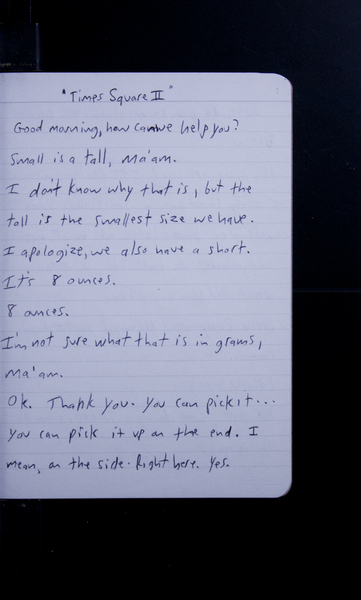 "Times Square II"
Good morning, how can we help you?
Small is a tall, ma'am.
I don't know why that is, but the
tall is the smallest size we have.
I apologize, we also have a short.
It's 8 ounces.
8 ounces.
I'm not sure what that is in grams,
ma'am.
Ok. Thank you. You can pick it...
you can pick it up on the end. I
mean, on the side. Right here. Yes.